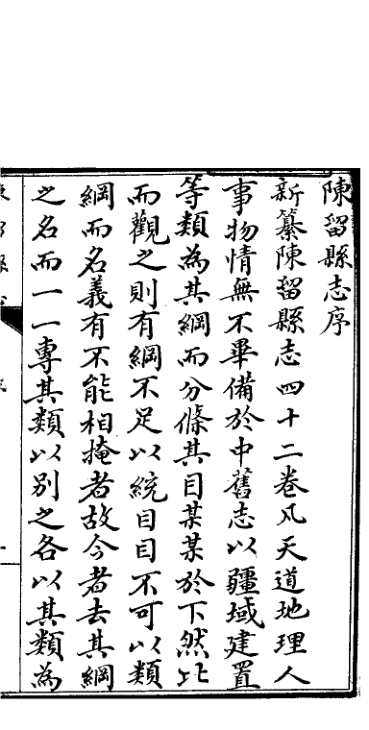 陳留縣志序
新纂陳留縣志四十二卷凡天道地理人
事物情無不畢備於中舊志以疆域建置
等類為其綱而分條其目某某於下然比
而觀之則有綱不足以統目目不可以類
綱而名義有不能相掩者故今者去其綱
之名而一一專其類以別之各以其類為